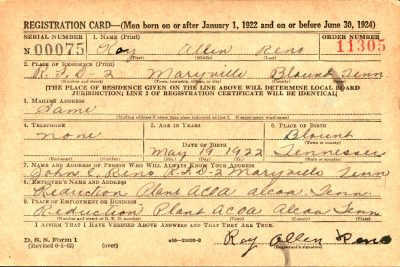 REGISTRATION CARD—(Men born on or after January 1, 1922 and on or before June 30, 1924)
SERIAL NUMBER 1. NAME (Print) ORDER NUMBER
N 00075 Roy Allen Reno 11305
(First) (Middle) (Last)
2. PLACE OF RESIDENCE (Print)
R.F.D-2 Maryville Blount Tenn.
(Number and street) (Town, township, village, or city) (County) (State)
[THE PLACE OF RESIDENCE GIVEN ON THE LINE ABOVE WILL DETERMINE LOCAL BOARD
JURISDICTION; LINE 2 OF REGISTRATION CERTIFICATE WILL BE IDENTICAL]
3. MAILING ADDRESS
Same
[Mailing address if other than place indicated on line 2. If same insert word same]
4. TELEPHONE 5. AGE IN YEARS 6. PLACE OF BIRTH
none Blount
DATE OF BIRTH (Town or county)
May 19 1922 Tennissee
(Exchange) (Number) (Mo.) (Day) (Yr.) (State or country)
7. NAME AND ADDRESS OF PERSON WHO WILL ALWAYS KNOW YOUR ADDRESS
John E. Reno R.F.D-2 Maryville Tenn
8. EMPLOYER'S NAME AND ADDRESS
Reduction Plant ACOA Alcoa, Tenn.
9. PLACE OF EMPLOYMENT OR BUSINESS
Reduction Plant ACOA Alcoa Tenn
(Number and street or R. F. D. number) (Town) (County) (State)
I AFFIRM THAT I HAVE VERIFIED ABOVE ANSWERS AND THAT THEY ARE TRUE.
D. S. S. Form 1
(Revised 6-1-42) (over) Roy Allen Reno